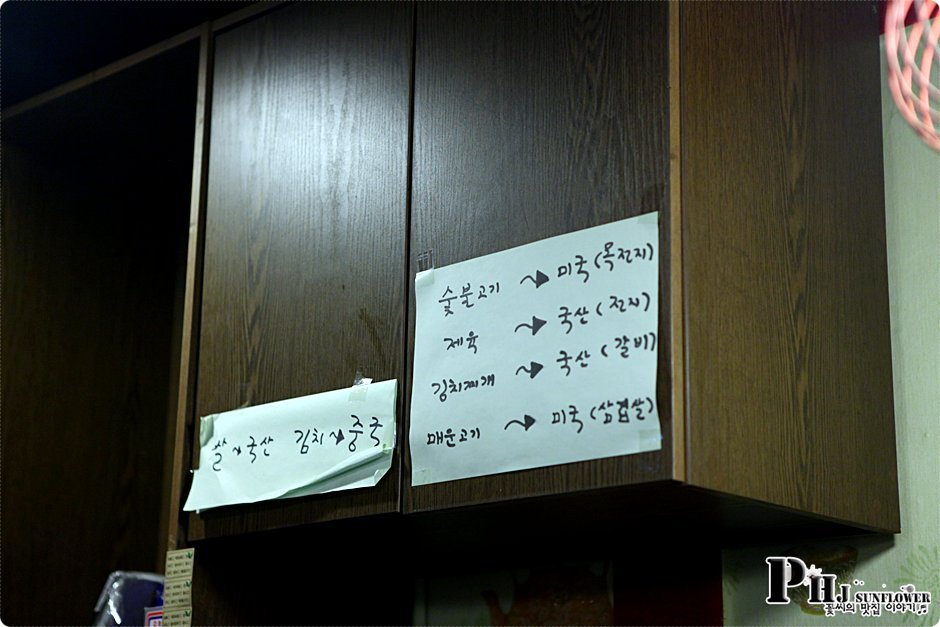 쌀 → 국산 김치 → 중국
숯불고기 → 미국 (목전지)
제육 → 국산 (전지)
김치찌개 → 국산 (갈비)
매운고기 → 미국 (삼겹살)
PHJ SUNFLOWER
꽃씨의 맛집 이야기♬